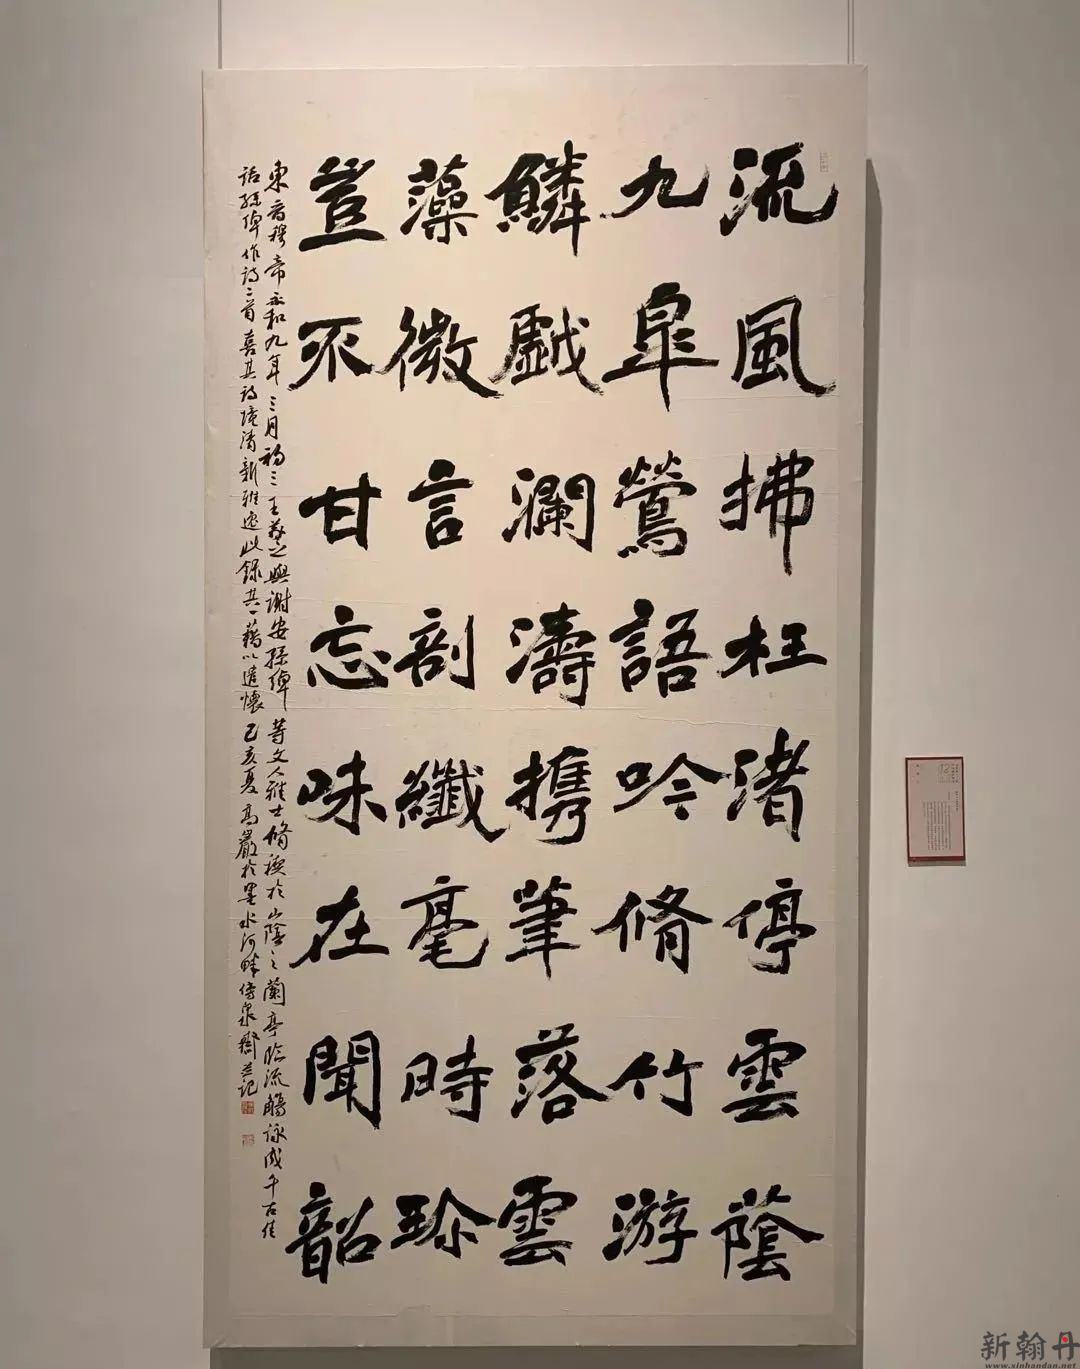 流風拂枉渚停雲蔭
九皐鶯語吟脩竹游
鱗戱瀾濤携筆落雲
藻微言剖纖毫時珍
豈不甘忘味在聞韶
東晉穆帝永和九年三月初三王羲之與謝安孫綽等文人雅士脩禊於山陰之蘭亭臨流觴詠成千古佳
話孫綽作詩二首喜其詩境清新雅逸此錄其一藉以遣懷己亥夏高巖於墨水河畔傍泉齋並記
新翰丹
www.xinhandan.net